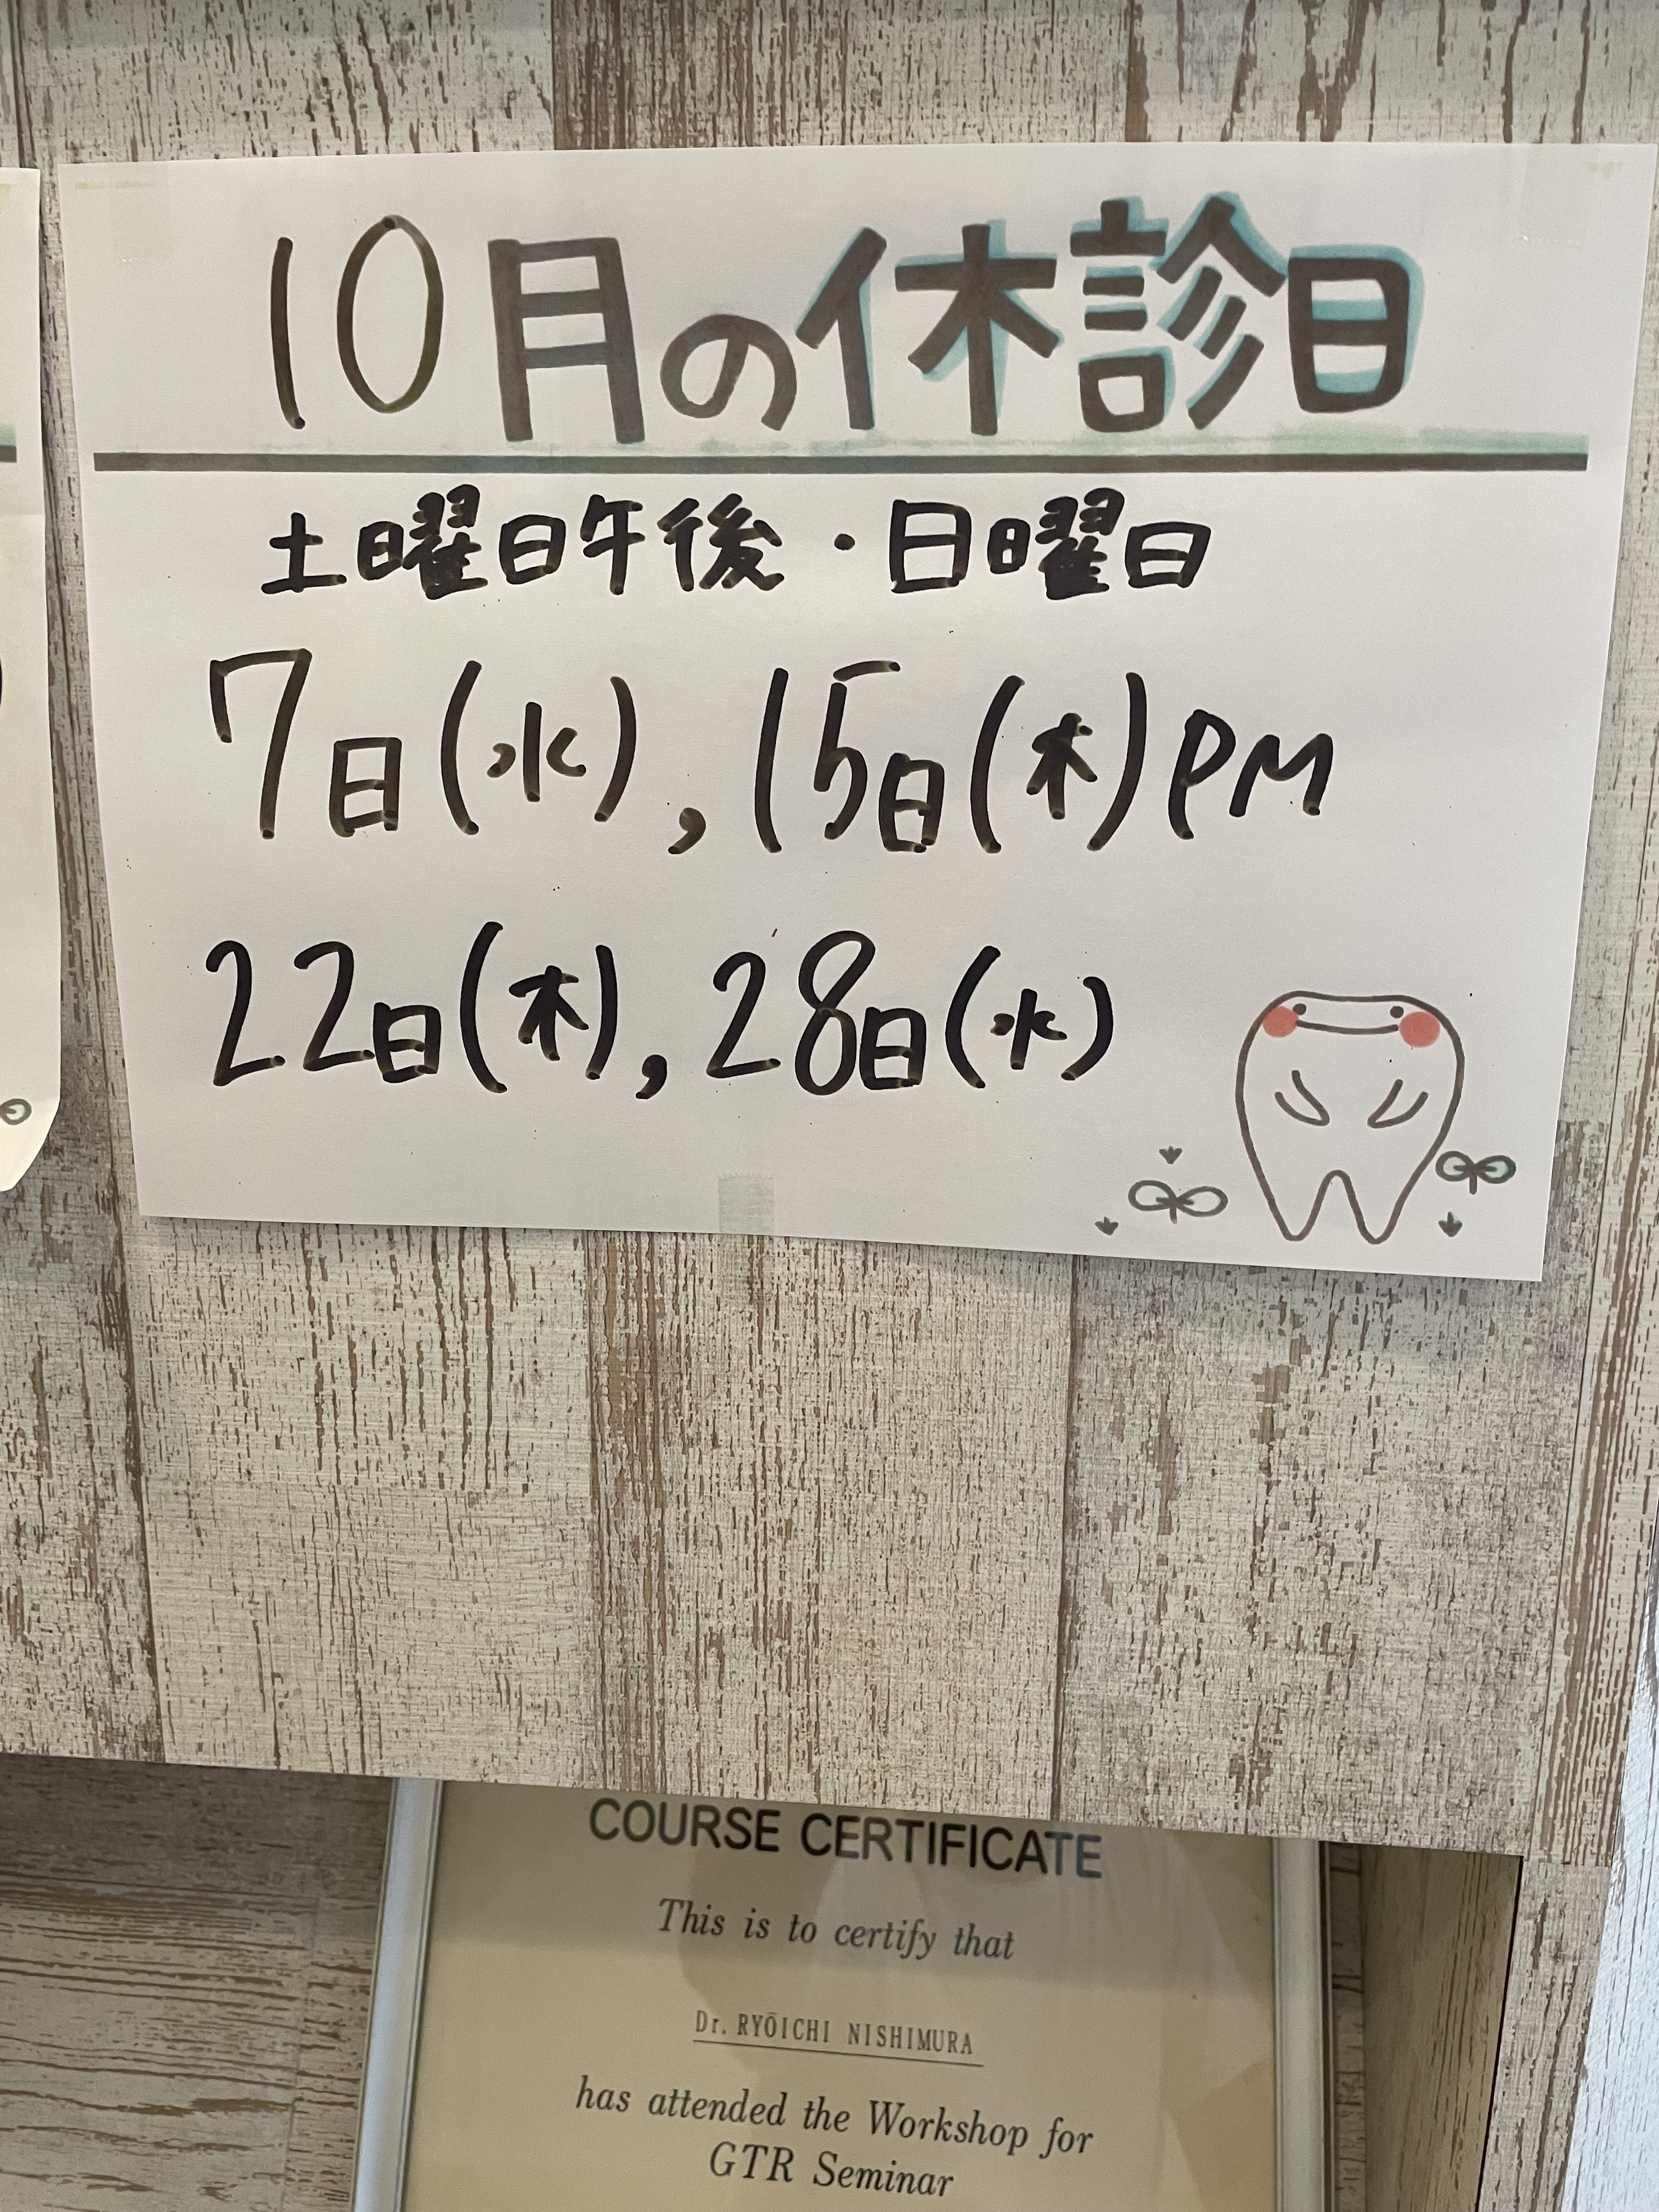 10月の休診日
土曜日午後・日曜日
7日(水),15日(木)PM
22日(木),28日(水)
COURSE CERTIFICATE
This is to certify that
Dr. RYŌICHI NISHIMURA
has attended the Workshop for
GTR Seminar